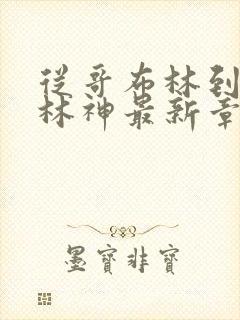 從哥布林到
林神最新章
墨寶非寶